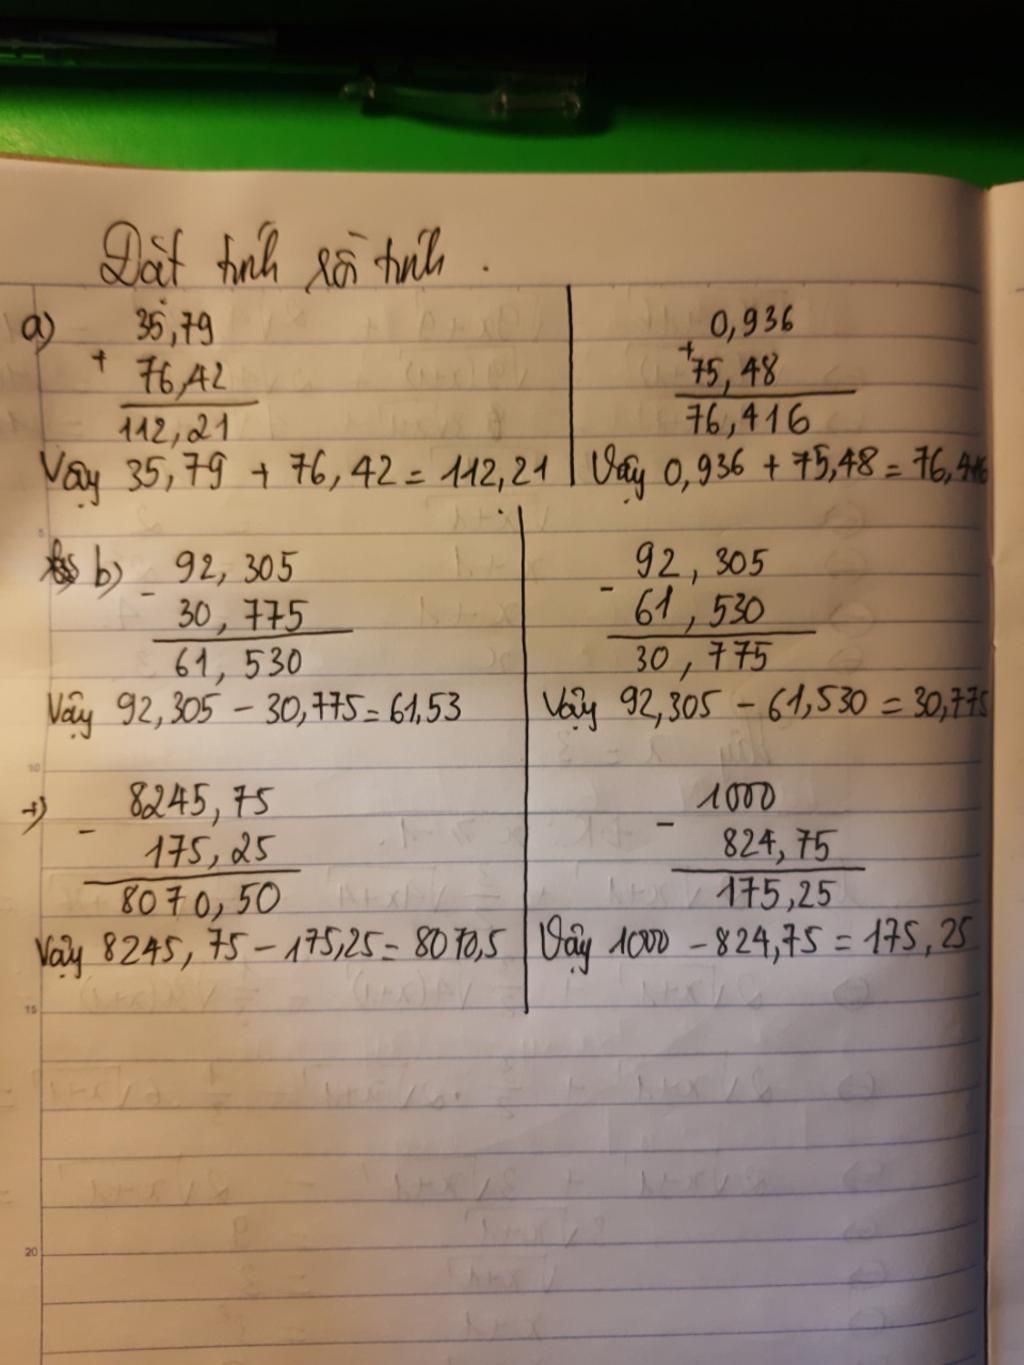 Đặt tính rồi tính.
a) 35,79
+
76,42
112,21
Vậy 35,79 + 76,42 = 112,21
0,936
+
75,48
76,416
Vậy 0,936 + 75,48 = 76,416
b) 92,305
-
30,775
61,530
Vậy 92,305 - 30,775 = 61,53
92,305
-
61,530
30,775
Vậy 92,305 - 61,530 = 30,775
+) 8245,75
-
175,25
8070,50
Vậy 8245,75 - 175,25 = 8070,5
1000
-
824,75
175,25
Vậy 1000 - 824,75 = 175,25
5
10
15
20